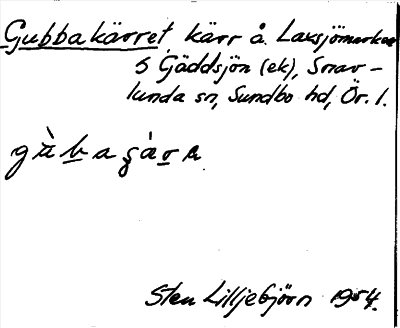 Gubbakärret, kärr å Laxsjömarken
S Gäddsjön (ek), Snav-
lunda sn, Sundbo hd, Ör. l.
Sten Lilljebjörn 1954.